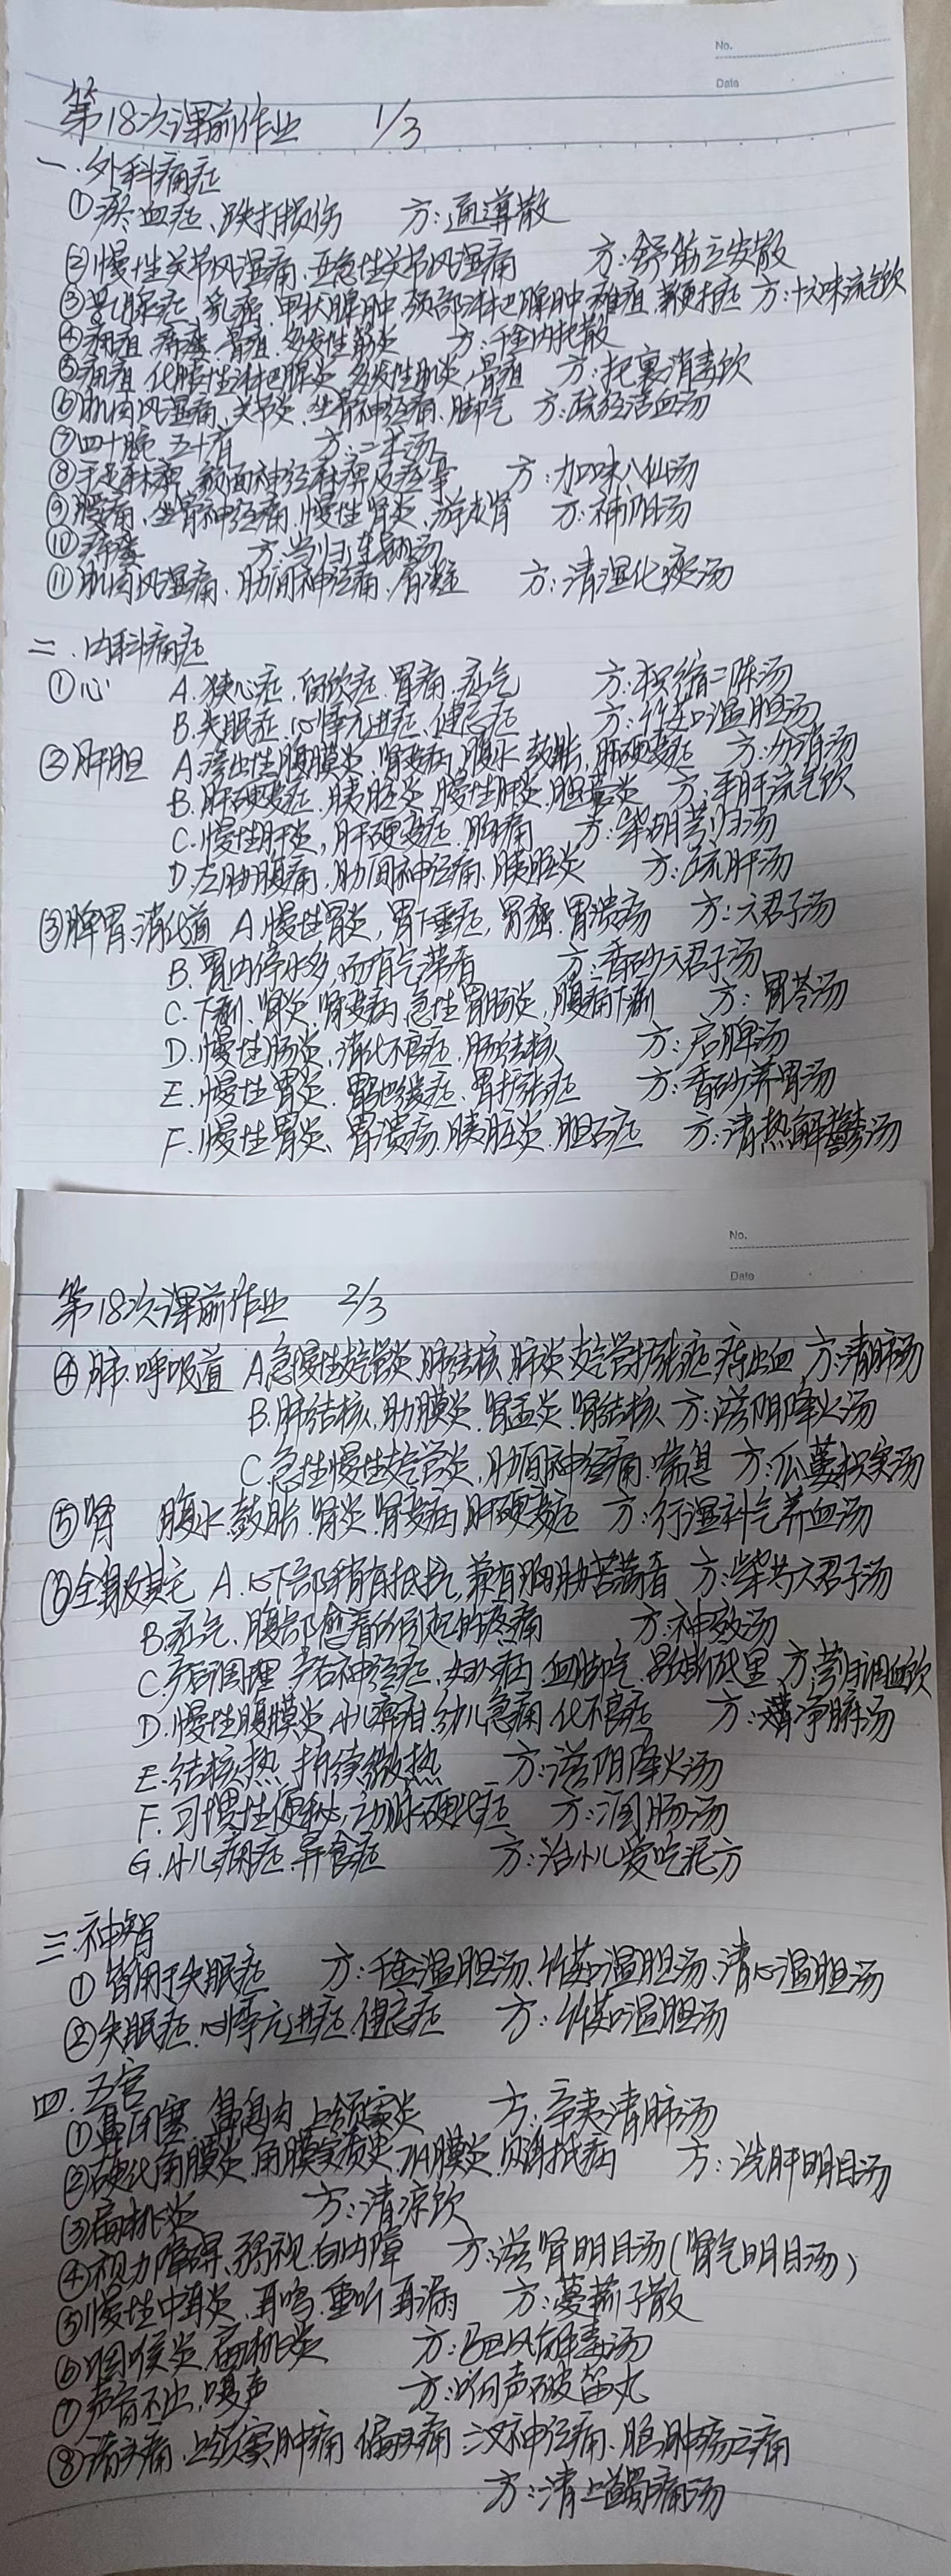 No.
Date
第18次课前作业 1/3
一.外科痛症
①瘀血症、跌打损伤 方:通导散
②慢性关节风湿痛、亚急性关节风湿痛 方:舒筋立安散
③乳腺症、乳癌、甲状腺肿、颈部淋巴腺肿、痈疽、鞭打症 方:十六味流气饮
④痈疽、瘰疬、骨疽、多发性筋炎 方:千金内托散
⑤痈疽、化脓性淋巴腺炎、多发性肌炎、骨疽 方:托里消毒饮
⑥肌肉风湿痛、关节炎、坐骨神经痛、脚气 方:疏经活血汤
⑦四十腕 五十肩 方:二术汤
⑧手足麻痹、颜面神经麻痹及痉挛 方:加味八仙汤
⑨腰痛、坐骨神经痛、慢性肾炎、游走肾 方:补阴汤
⑩痔瘘 方:当归连翘汤
⑪肌肉风湿痛、肋间神经痛、肩凝 方:清湿化痰汤
二.内科痛症
①心 A.狭心症、留饮症、胃痛、疝气 方:枳缩二陈汤
B.失眠症、心悸亢进症、健忘症 方:竹茹温胆汤
②肝胆 A.渗出性腹膜炎、肾变病、腹水、鼓胀、肝硬变症 方:分消汤
B.肝硬变症、胰脏炎、慢性肝炎、胆囊炎 方:平肝流气饮
C.慢性肝炎,肝硬变症、胸痛 方:柴胡芎归汤
D.左胁腹痛、肋间神经痛、胰脏炎 方:疏肝汤
③脾胃 消化道 A.慢性胃炎,胃下垂症,胃癌、胃溃疡 方:六君子汤
B.胃内停水多,而有气滞者 方:香砂六君子汤
C.下痢、肾炎、肾变病、急性胃肠炎,腹痛下痢 方:胃苓汤
D.慢性肠炎,消化不良症、肠结核 方:启脾汤
E.慢性胃炎、胃弛缓症、胃扩张症 方:香砂养胃汤
F.慢性胃炎、胃溃疡、胰脏炎、胆石症 方:清热解郁汤
No.
Date
第18次课前作业 2/3
④肺.呼吸道 A急慢性支气管炎、肺结核、肺炎、支气管扩张症、痔出血 方:清肺汤
B.肺结核、肋膜炎、肾盂炎、肾结核 方:滋阴降火汤
C.急性慢性支气管炎,肋间神经痛、喘息 方:瓜蒌枳实汤
⑤肾 腹水、鼓胀、肾炎、肾变病、肝硬变症 方:行湿补气养血汤
⑥全身及其它 A.心下部稍有抵抗,兼有胸胁苦满者 方:柴芍六君子汤
B.疝气、腹部愈着所引起的疼痛 方:神效汤
C.产后调理、产后神经症、妇人病、血脚气 方:芎归调血饮
D.慢性腹膜炎 小儿疳 方:浄腑汤
E.结核热、持续微热 方:滋阴降火汤
F.习惯性便秘,动脉硬化症 方:润肠汤
G.小儿病症、异食症 方:治小儿爱吃泥方
三.神智
①皆用于失眠症 方:千金温胆汤、竹茹温胆汤、清心温胆汤
②失眠症、心悸亢进症、健忘症 方:竹茹温胆汤
四.五官
①鼻闭塞、鼻息肉、上颌窦炎 方:辛夷清肺汤
②硬化角膜炎、角膜实质炎、方:洗肝明目汤
③扁桃炎 方:清凉饮
④视力障碍、弱视、白内障 方:滋肾明目汤(肾气明目汤)
⑤慢性中耳炎、耳鸣、重听、耳漏 方:蔓荆子散
⑥咽喉炎、扁桃炎 方:驱风解毒汤
⑦声音不出,嗄声 方:响声破笛丸
⑧诸头痛、上颌窦肿痛、偏头痛、三叉神经痛、脑肿疡之痛
方:清上蠲痛汤